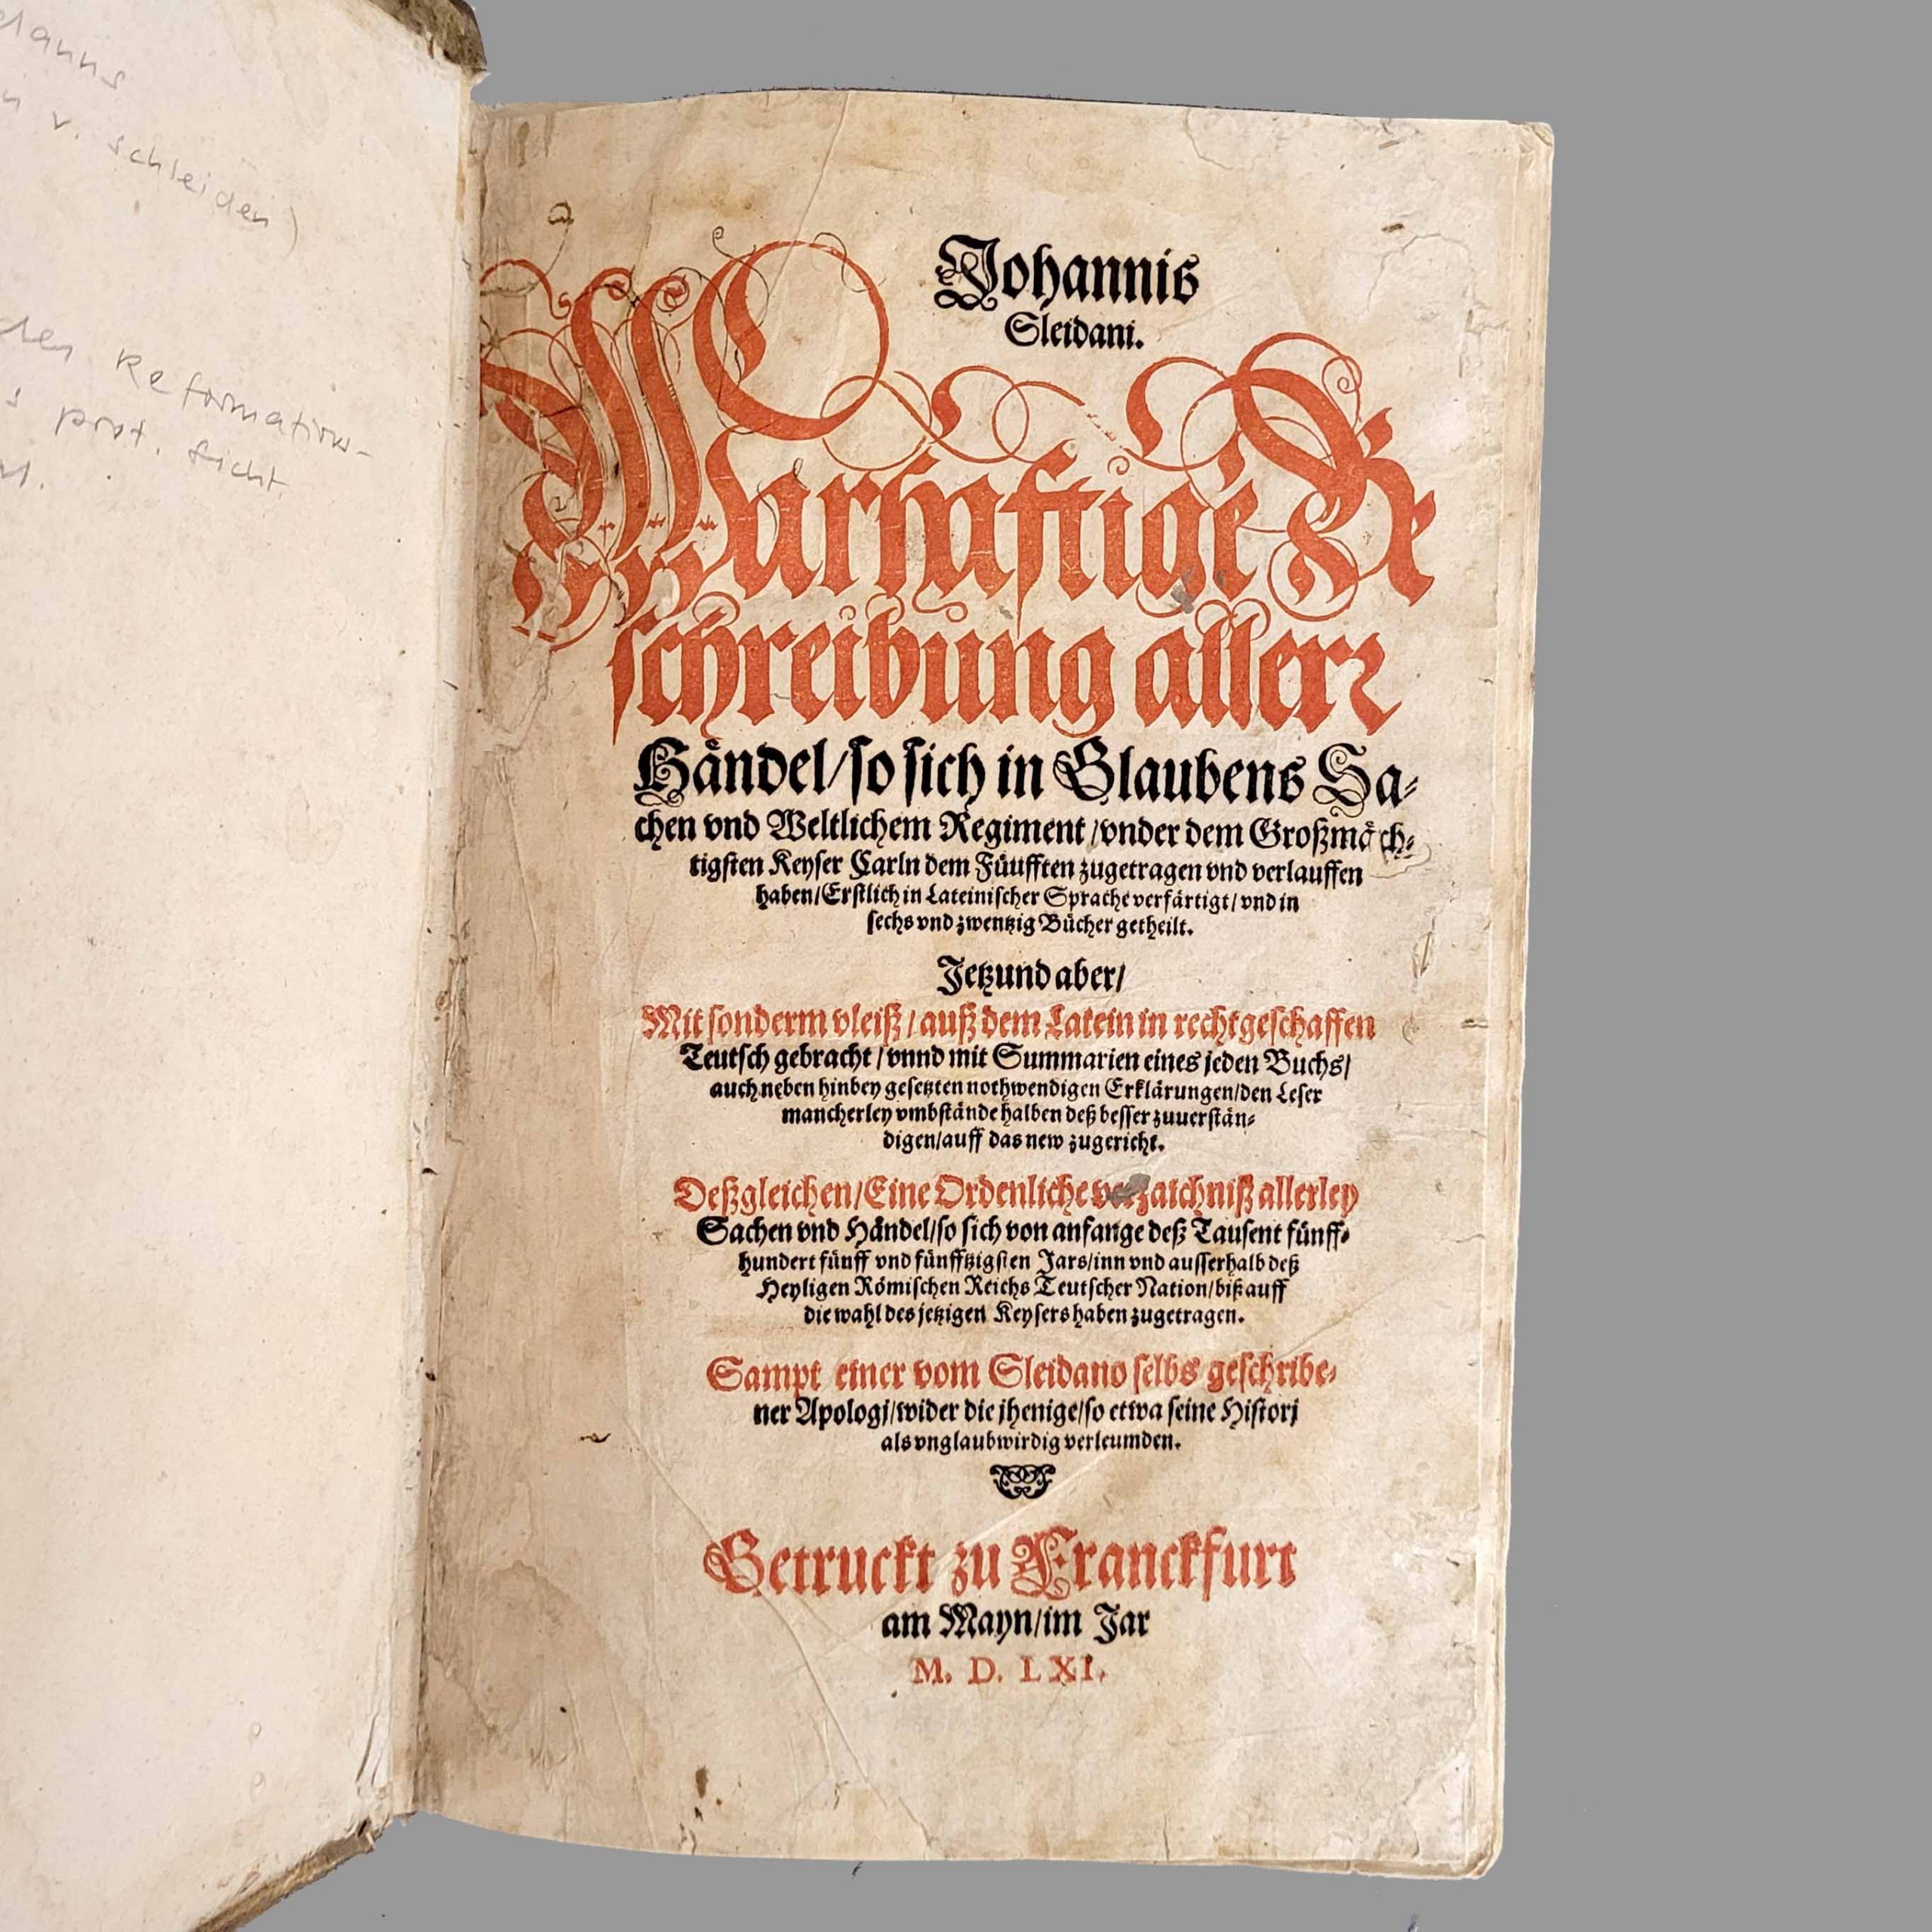 v. schleiden)
der Reformation-
prot. Sicht
Johannis
Sleidani.
Warhafftige Be
schreibung aller
Händel/so sich in Glaubens Sa-
chen vnd Weltlichem Regiment/vnder dem Großmäch-
tigsten Keyser Carln dem Füufften zugetragen vnd verlauffen
haben/Erstlich in Lateinischer Sprache verfärtigt/vnd in
sechs vnd zwentzig Bücher getheilt.
Jetzund aber/
Mit sonderm vleiß/auß dem Latein in rechtgeschaffen
Teutsch gebracht/vnnd mit Summarien eines jeden Buchs/
auch neben hinbey gesetzten nothwendigen Erklärungen/den Leser
mancherley vmbstände halben deß besser zuuerstän-
digen/auff das new zugericht.
Deßgleichen/Eine Ordenliche verzaichniß allerley
Sachen vnd Händel/so sich von anfange deß Tausent fünff-
hundert fünff vnd fünfftzigsten Jars/inn vnd ausserhalb deß
Heyligen Römischen Reichs Teutscher Nation/biß auff
die wahl des jetzigen Keysers haben zugetragen.
Sampt einer vom Sleidano selbs geschribe-
ner Apologj/wider die jhenige/so etwa seine Historj
als vnglaubwirdig verleumden.
Getruckt zu Franckfurt
am Mayn/im Jar
M. D. LXI.